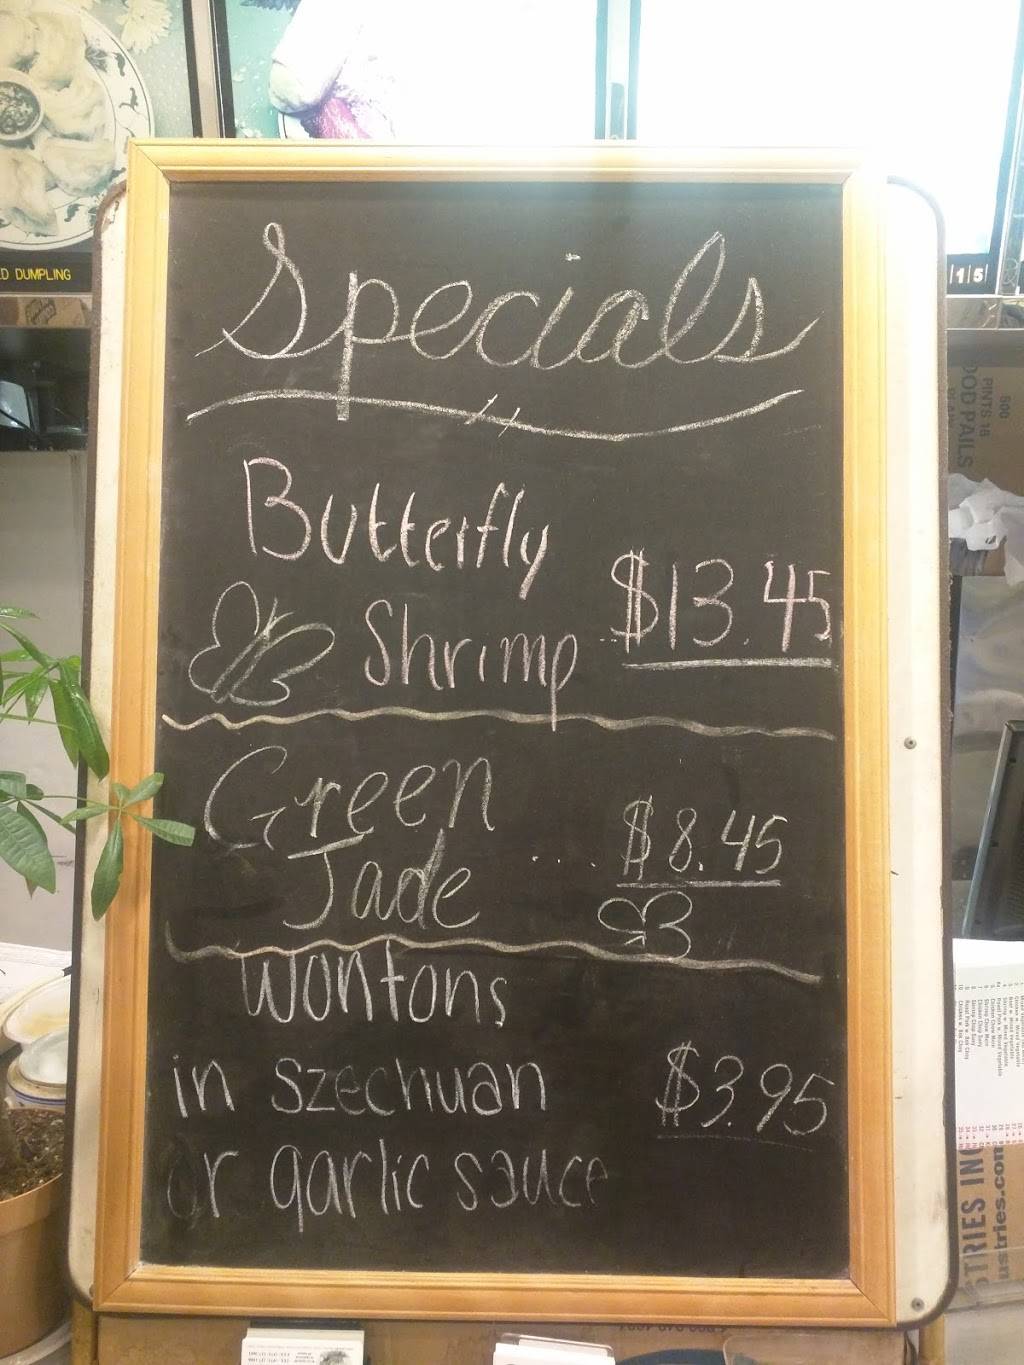 Specials
Butterfly
Shrimp .. $13.45
Green
Jade .... $8.45
Wontons
in Szechuan $3.95
or garlic sauce
D DUMPLING
15
500
PINTS 16
OOD PAILS
STRIES IN
ustries.com